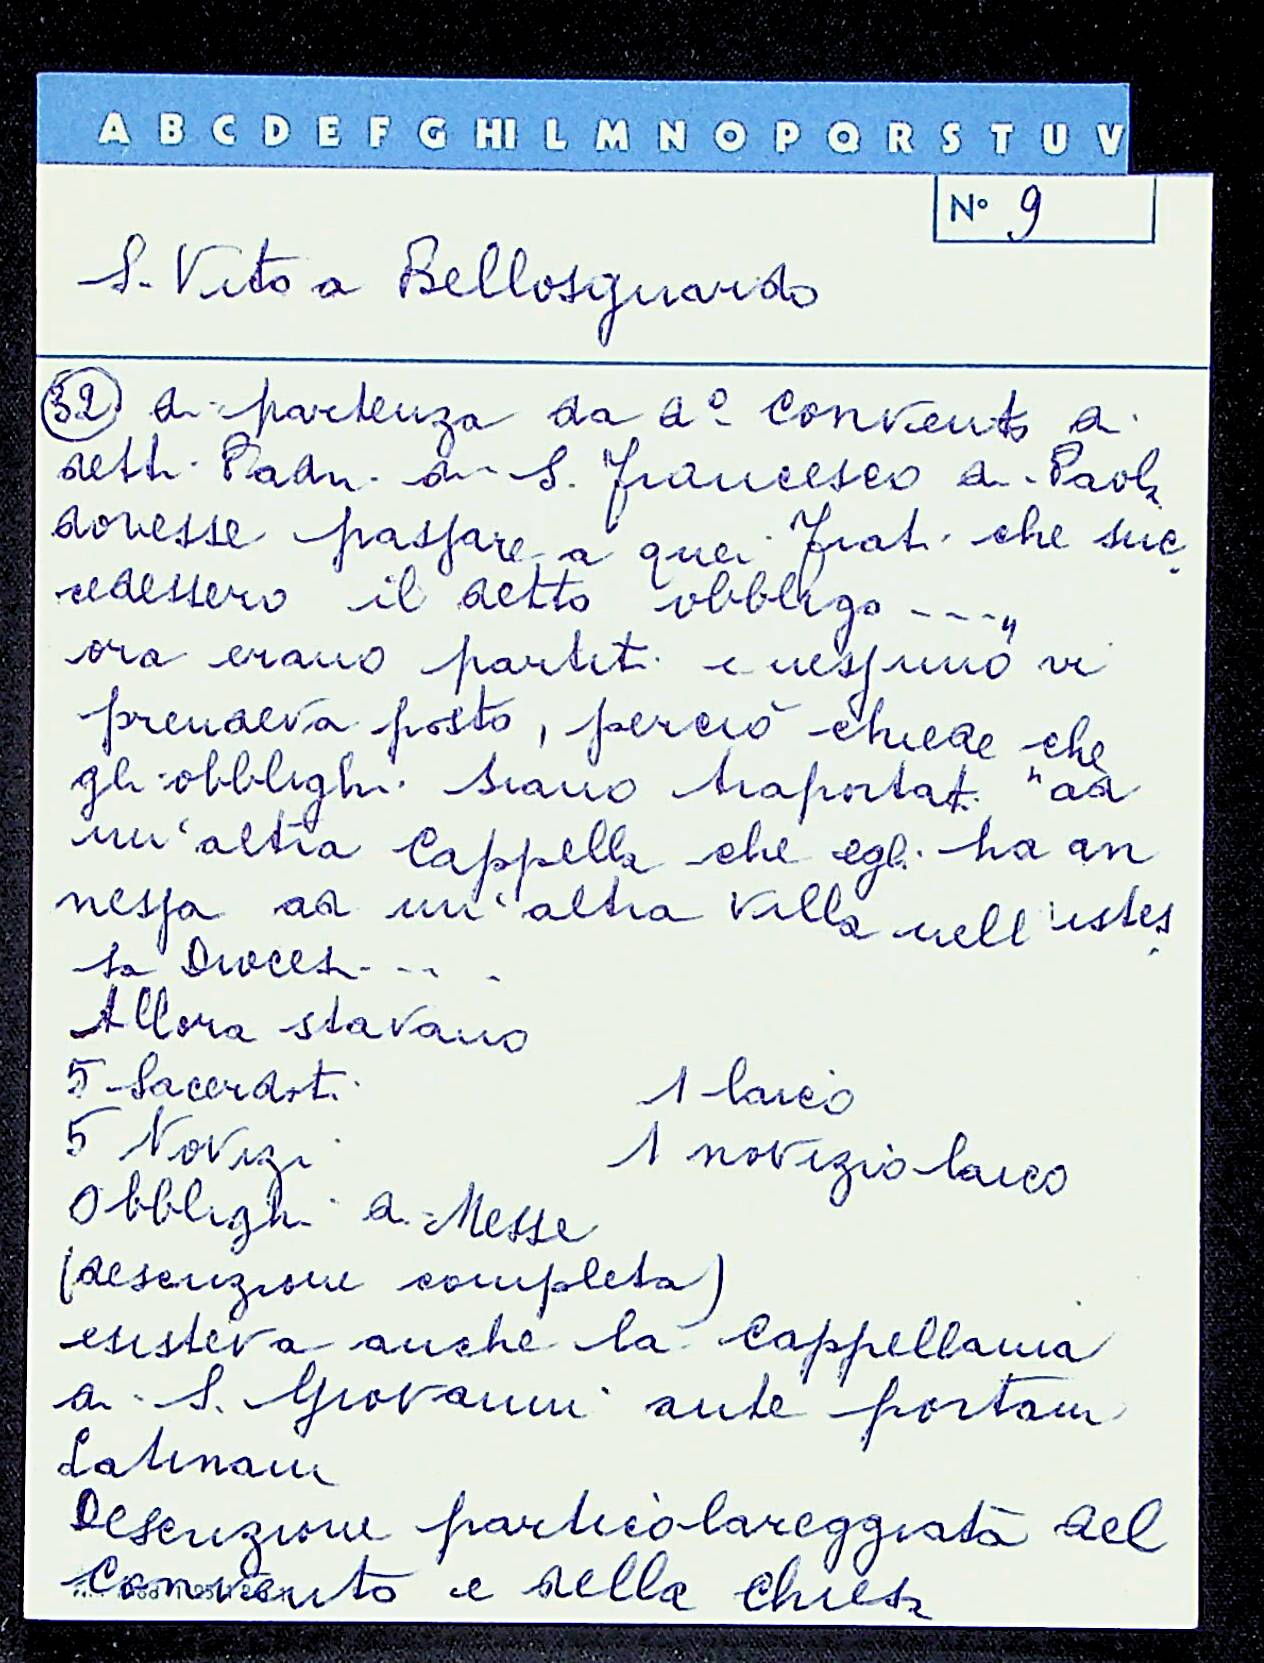 A B C D E F G HI L M N O P Q R S T U V
N° 9
S. Vito a Bellosguardo
32 di partenza da d° Convento di
detti Padri di S. Francesco di Paola
dovesse passare a quei Frati che suc
cedessero il detto obbligo ----"
ora erano partiti e nessuno vi
prendeva posto, perciò chiede che
gli obblighi siano traportati "ad
un'altra Cappella che egli ha an
nessa ad un'altra Villa nell'istes
sa Diocesi....
Allora stavano
5 Sacerdoti 1 laico
5 Novizi 1 novizio laico
Obblighi di Messe
(descrizione completa)
esisteva anche la Cappellania
di S. Giovanni ante portam
Latinam
Descrizione particolareggiata del
Convento e della Chiesa